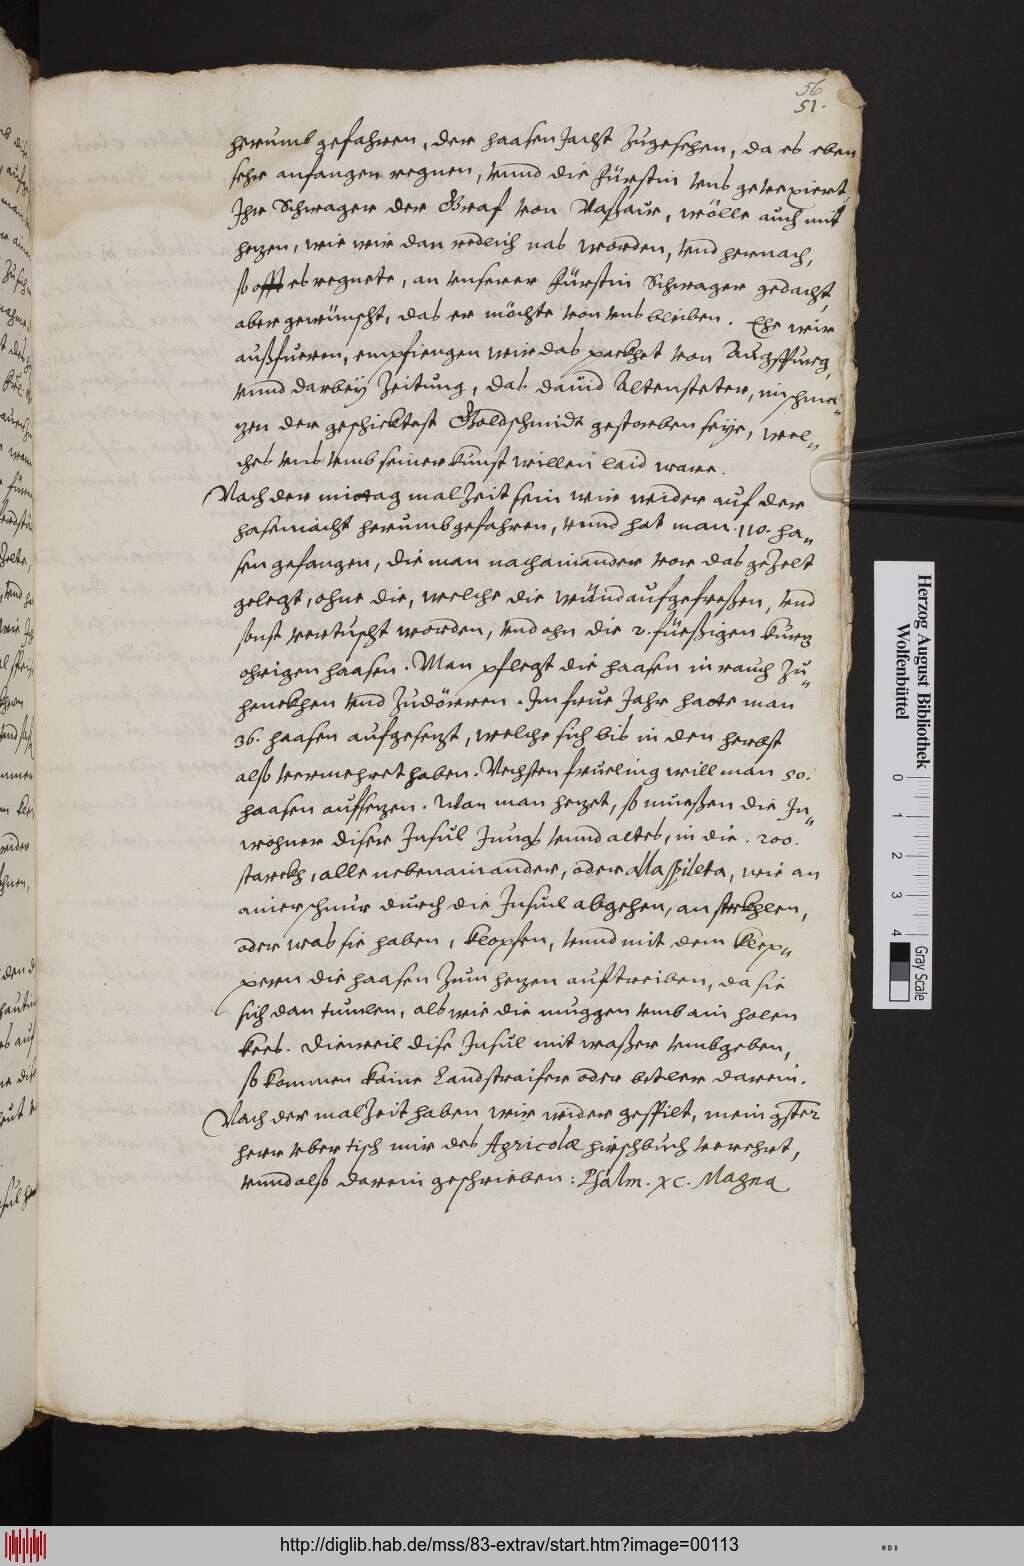 56
51.
herumb gefahren, der haasen Jacht zugesehen, da es eben
sehr anfangen regnen, vnnd die fürstin vns getrexiert,
Ihr Schwager der Graf von Naßaw, wölle auch mit
hezen, wie wir dan redlich nas worden, vnd hernach,
so offt es regnete, an vnserer fürstin Schwager gedacht,
aber gewünscht, das er möchte von vns bleiben. Ehe wir
außfueren, empfiengen wir das packhet von Augspurg,
vnnd darbey Zeitung, das dauid Altensteter, im schmel„
zen der geschicktest Goldschmidt gestorben seye, wel„
ches vns vmb seiner kunst willen laid ware.
Nach der mittag malzeit sein wir wider auf der
haseniacht herumb gefahren, vnnd hat man .110. ha„
sen gefangen, die man nachainander vor das gezelt
gelegt, ohne die, welche die wünd aufgefreßen, vnd
sonst vertuscht worden, vnd ohn die 2. füeßigen kurz
ohrigen haasen. Man pflegt die haasen in rauch zu„
henckhen vnd zudörren. Im frue Jahr hatte man
36. haasen aufgesezt, welche sich bis in den herbst
alß vermehret haben. Nechsten frueling will man 50.
haasen aufsezen. Wan man hezet, so mueßen die In„
wohner diser Insul Jungs vnnd altes, in die .200.
starckh, alle nebenainander, oder alla spileta, wie an
ainer schnur durch die Insul abgehen, an steckhlen,
oder was sie haben, klopfen, vnnd mit dem klep„
pern die haasen zum hezen auftreiben, da sie
sich dan tumlen, als wie die muggen vmb ain holen
kees. Dieweil dise Insul mit waßer vmbgeben,
so kommen kaine Landstraifer oder betler darein.
Nach der malzeit haben wir wider gespilt, mein gster
herr vber tisch mir des Agricolæ hirschbuch verehrt,
vnnd alß darein geschrieben: Psalm. XC. Magna
Herzog August Bibliothek
Wolfenbüttel
0 1 2 3 4
Gray Scale
http://diglib.hab.de/mss/83-extrav/start.htm?image=00113